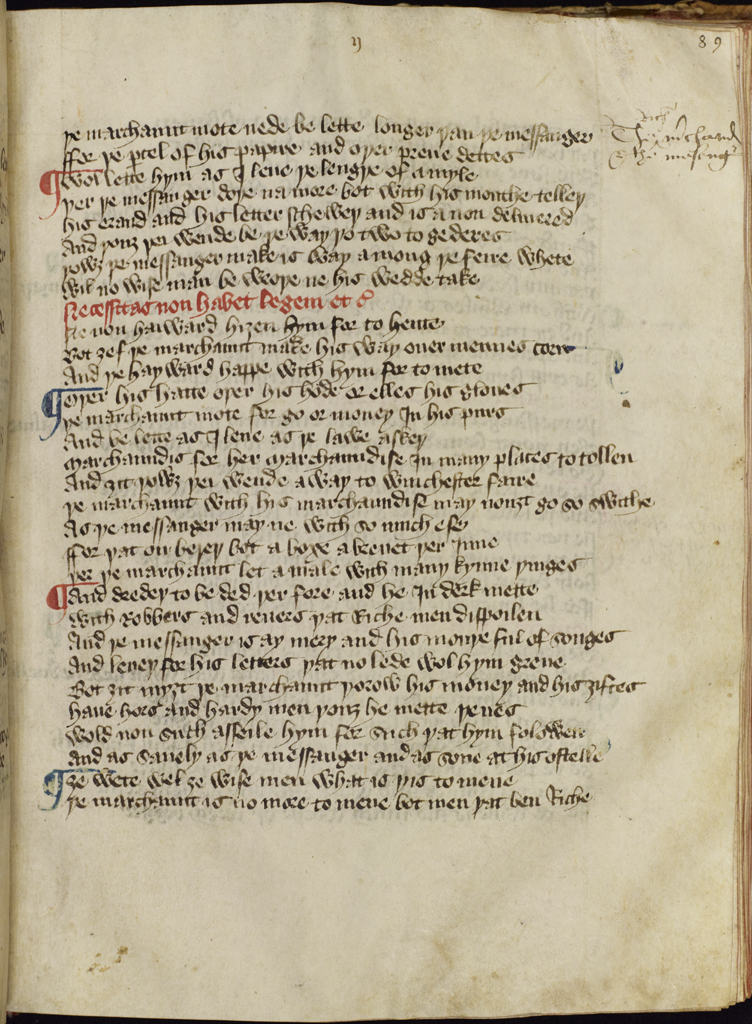 ij
89
þe marchaunt mote nede be lette longer þan þe messanger
For þe pcel of his papure and oþer preue dettes
Wol lette hym as I leue þe lengþe of a myle
þer þe messanger doþe na more bot with his mouthe telleþ
his erand and his letter scheweþ and is a non delyuered
And þouȝ þei wende be þe way þo two to gederes
þowȝ þe messanger make is way a mong þe feire whete
Wil no wise man be wroþe ne his wedde take
Necessitas non habet legem et c̃
Ne non haiward hiȝen hym for to hente
Bot ȝef þe marchaunt make his way ouer mennes corn
And þe hayward happe with hym for to mete
Oþer his hatte oþer his hode or elles his gloues
þe marchaunt mote for go or money In his purs
And be lette as I leue as þe lawe askeþ
Marchaundis for her marchaundise In many places to tollen
And ȝit þowȝ þei wende a way to winchester faire
þe marchaunt with his marchaundise may nouȝt go so swithe
As þe messanger may ne with so miche ese
For þat on bereþ bot a boxe a breuet þer Inne
þer þe marchaunt let a male with many kynne þinges
And dredeþ to be ded þer fore and he In derk mette
With Robbers and reuers þat Riche men dispoilen
And þe messanger is ay mery and his mouþe ful of songes
And leueþ for his letters þat no lede wol hym greue
Bot ȝit myȝt þe marchaunt þorow his money and his ȝiftes
haue hors and hardy men þouȝ he mette þeues
Wold non such asseile hym for such þat hym folowen
And as sauely as þe messanger and as sone at his ostelle
Ȝe wete wel ȝe wise men what is þis to mene
þe marchaunt is no more to mene bot men þat ben Riche